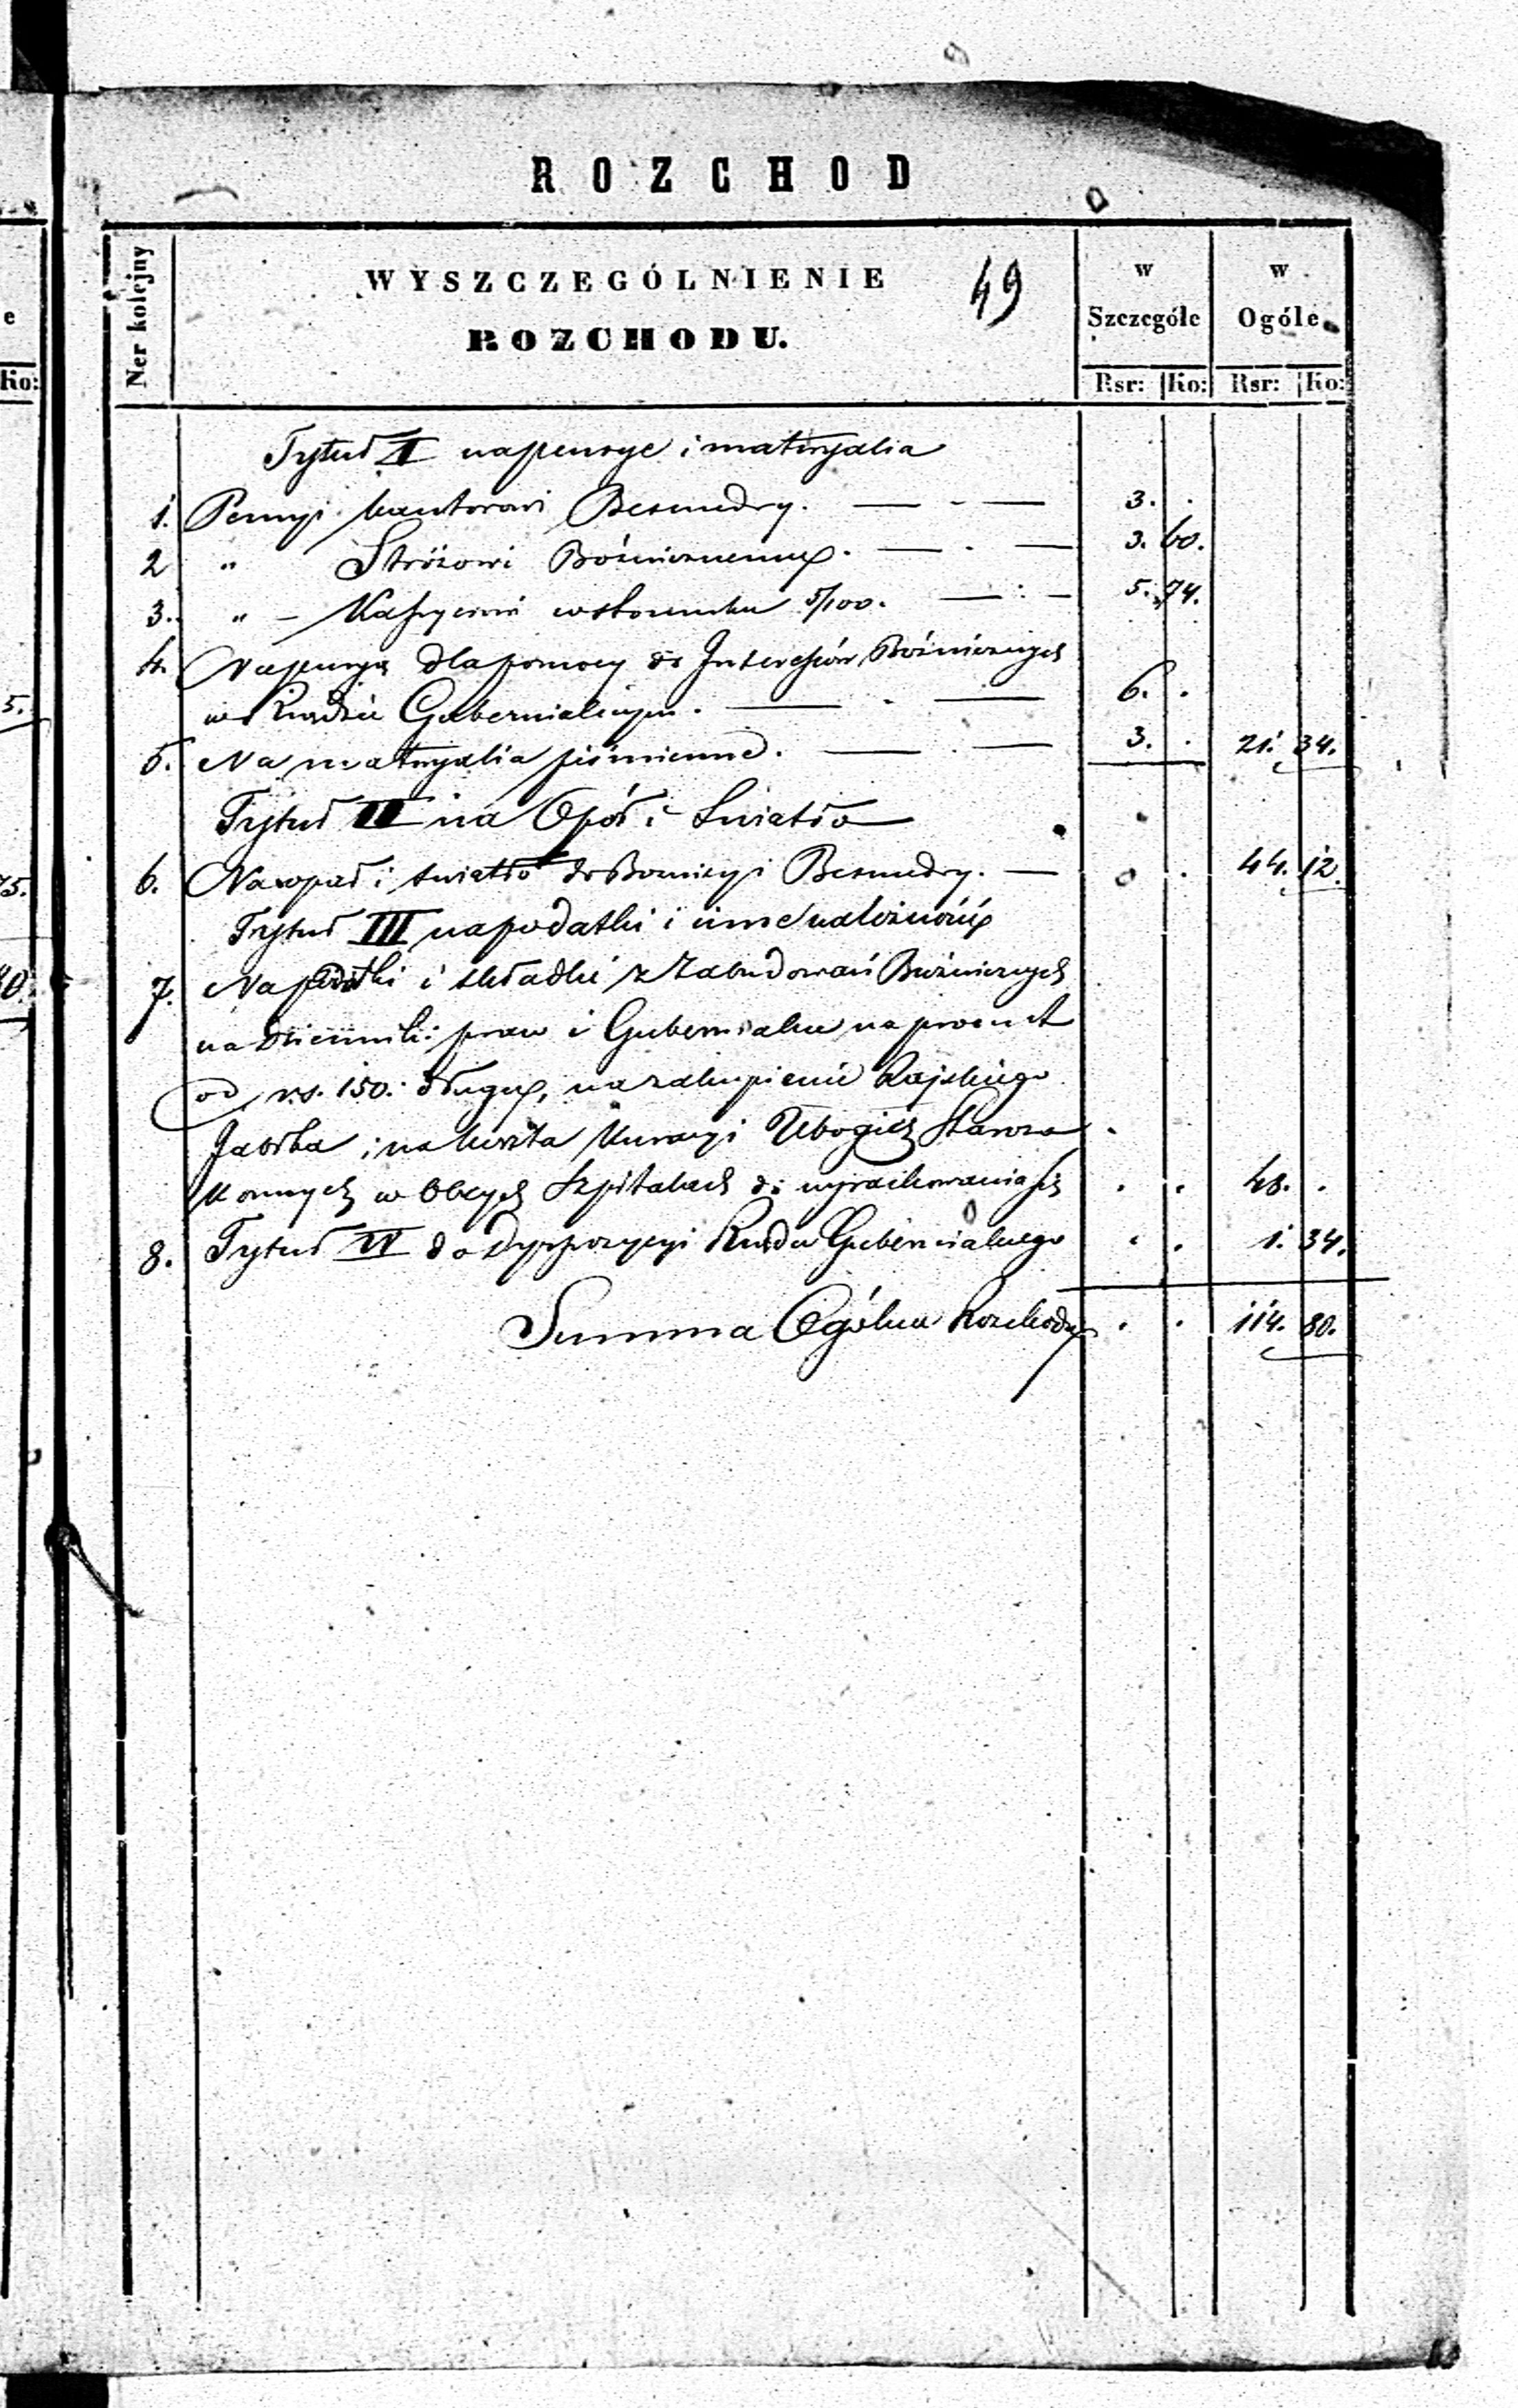 ROZCHOD
Ner kolejny
WYSZCZEGÓLNIENIE
ROZCHODU.
49
w Szczególe
w Ogóle
Rsr: Ko: Rsr: Ko:
Tytuł I na pensye i materyalia
1. Pensyi kantorowi Besmedry. 3. .
2 " Stróżowi Bóżnicznemu. 3. 60.
3. " Kassyerowi w stosunku 5/100. 5. 74.
4. Na pensyą dla pomocy do Interessów Bóżnicznych
w Rządzie Gubernialnym. 6. .
5. Na materyalia piśmienne. 3. . 21. 34.
Tytuł II na Opał i Światło
6. Na opał i światło do Boznicy i Besmedry. 44. 12.
Tytuł III na podatki i inne należności
7. Na podatki i składki z Zabudowań Bóżnicznych
na dzienniki praw i Gubernialne na procent
od r.s. 150. długu, na zakupienie Rajskiego
Jabłka i na koszta Kuracyi Ubogich Staroza
konnych w Obcych Szpitalach do wyrachowania się . . 48. .
8. Tytuł IV do Dyspozycyi Rządu Gubernialnego . . 1. 34.
Summa Ogólna Rozchodu . . 114. 80.